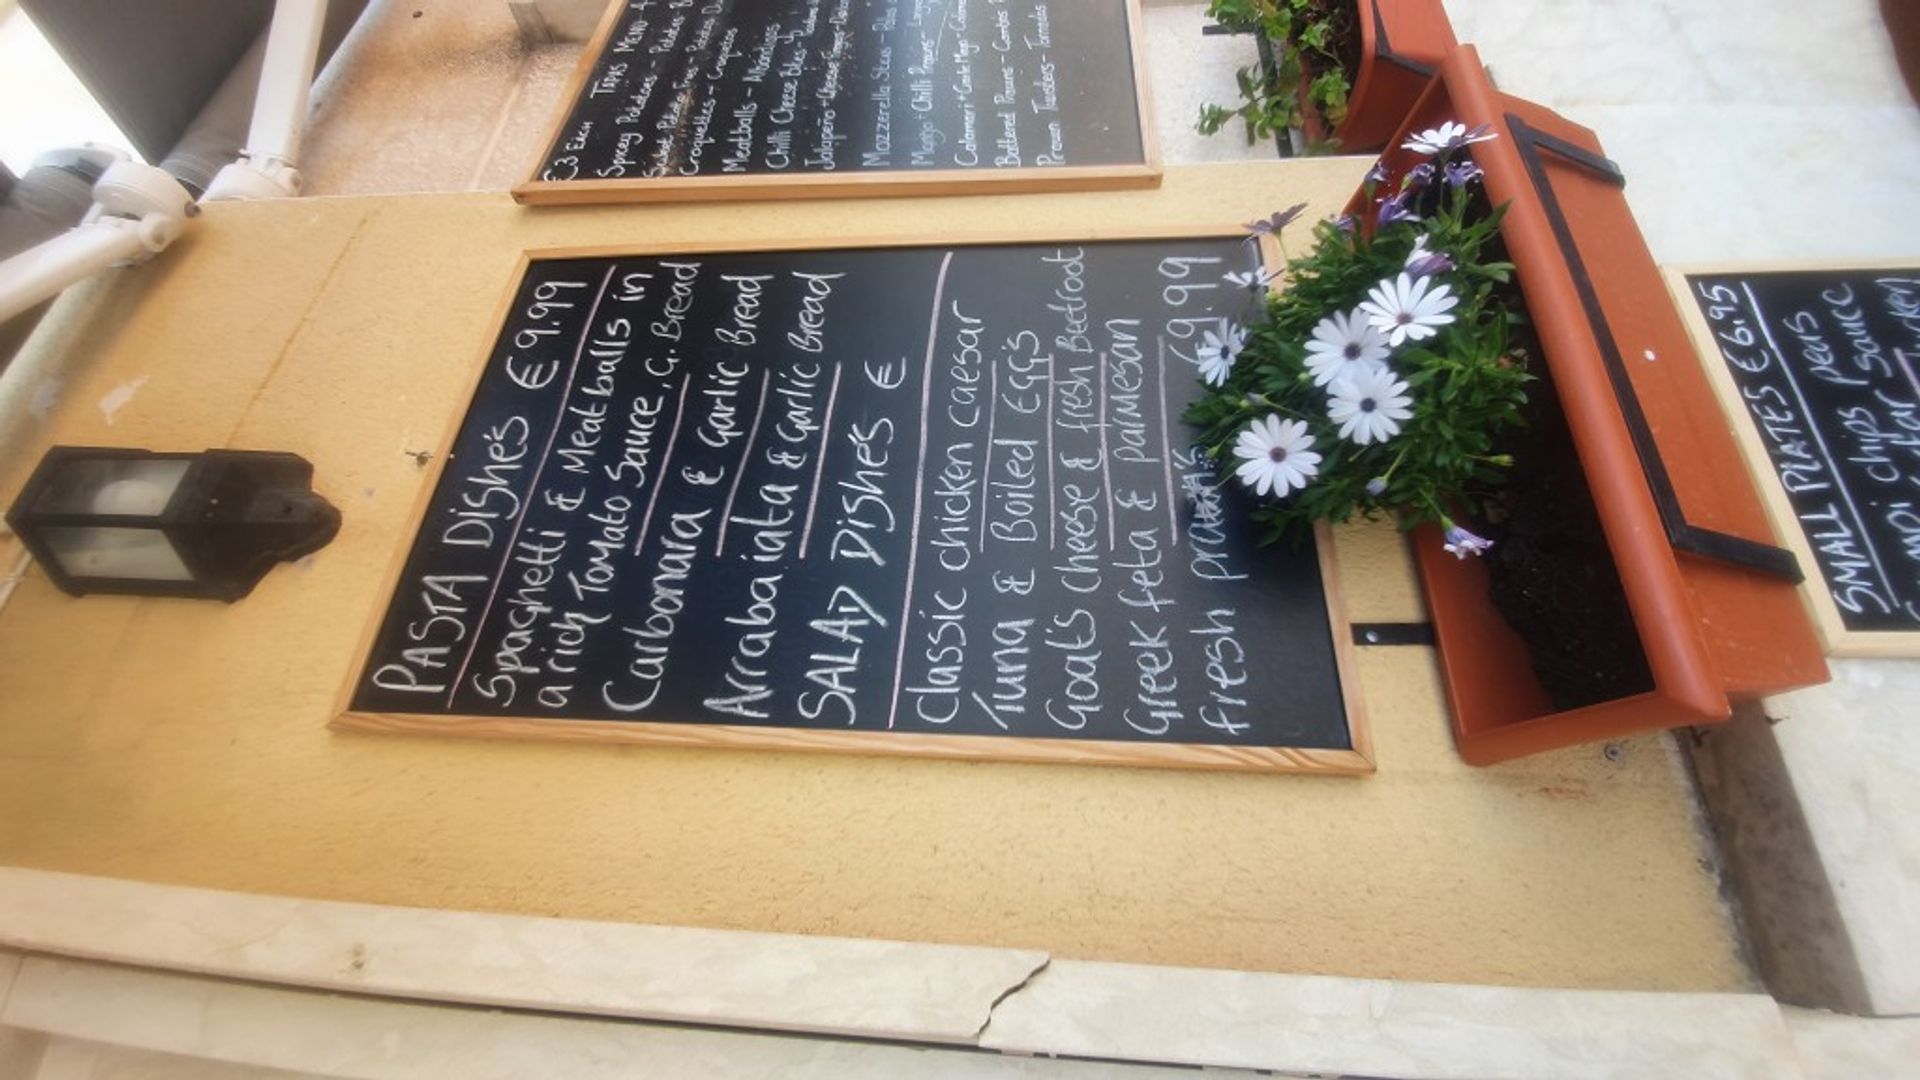 £3 Each TAPAS MENU
Spicey Potatoes - Potatoes
Potato Fries - Potatoes
Croquettes - Croquettas
Meatballs - Albóndigas
Chilli Cheese Bites -
Jalapeño + Cheese Fingers
Mozzerella Sticks - Palos
Mango + Chilli Prawns -
Calamari + Garlic Mayo
Battered Prawns - Gambas
Prawn Twisters - Tornados
PASTA DISHE'S €9.99
Spaghetti & Meatballs in
a rich Tomato Sauce, G. Bread
Carbonara & Garlic Bread
Arrabaiata & Garlic Bread
SALAD DISHE'S €
Classic chicken caesar
Tuna & Boiled EGG'S
Goat's cheese & fresh Beetroot
Greek feta & parmesan
fresh 9.99
SMALL PLATES €6.95
chips peas
sauce